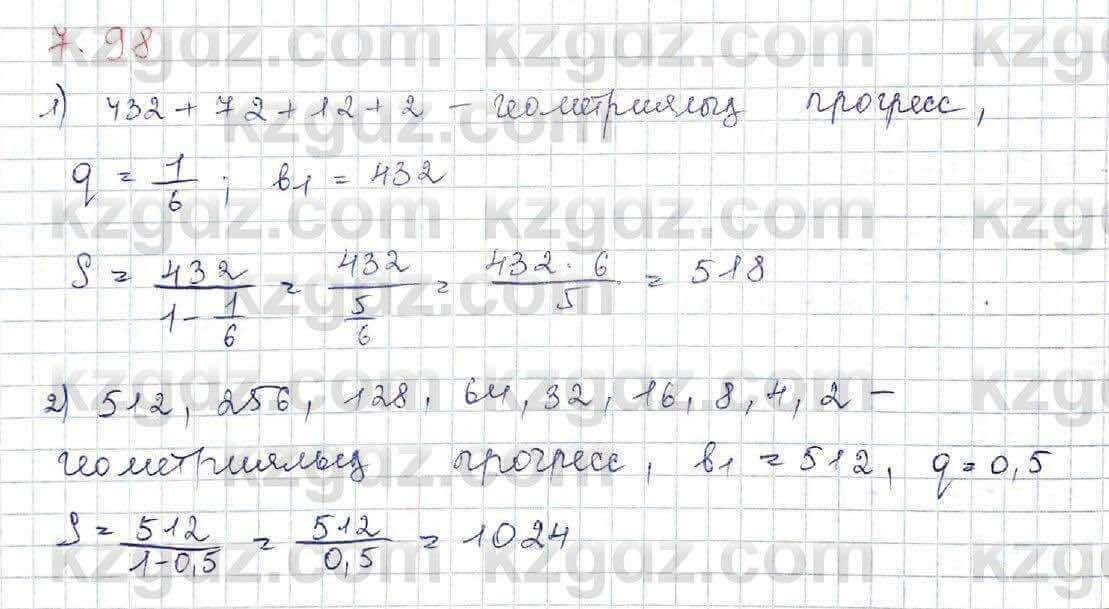 7.98
1) 432 + 72 + 12 + 2 – геометриялық прогресс,
q = 1/6 ; b1 = 432
S = 432/(1 - 1/6) = 432/(5/6) = (432 · 6)/5 = 518
2) 512, 256, 128, 64, 32, 16, 8, 4, 2 –
геометриялық прогресс, b1 = 512, q = 0,5
S = 512/(1-0,5) = 512/0,5 = 1024
kzgdz.com